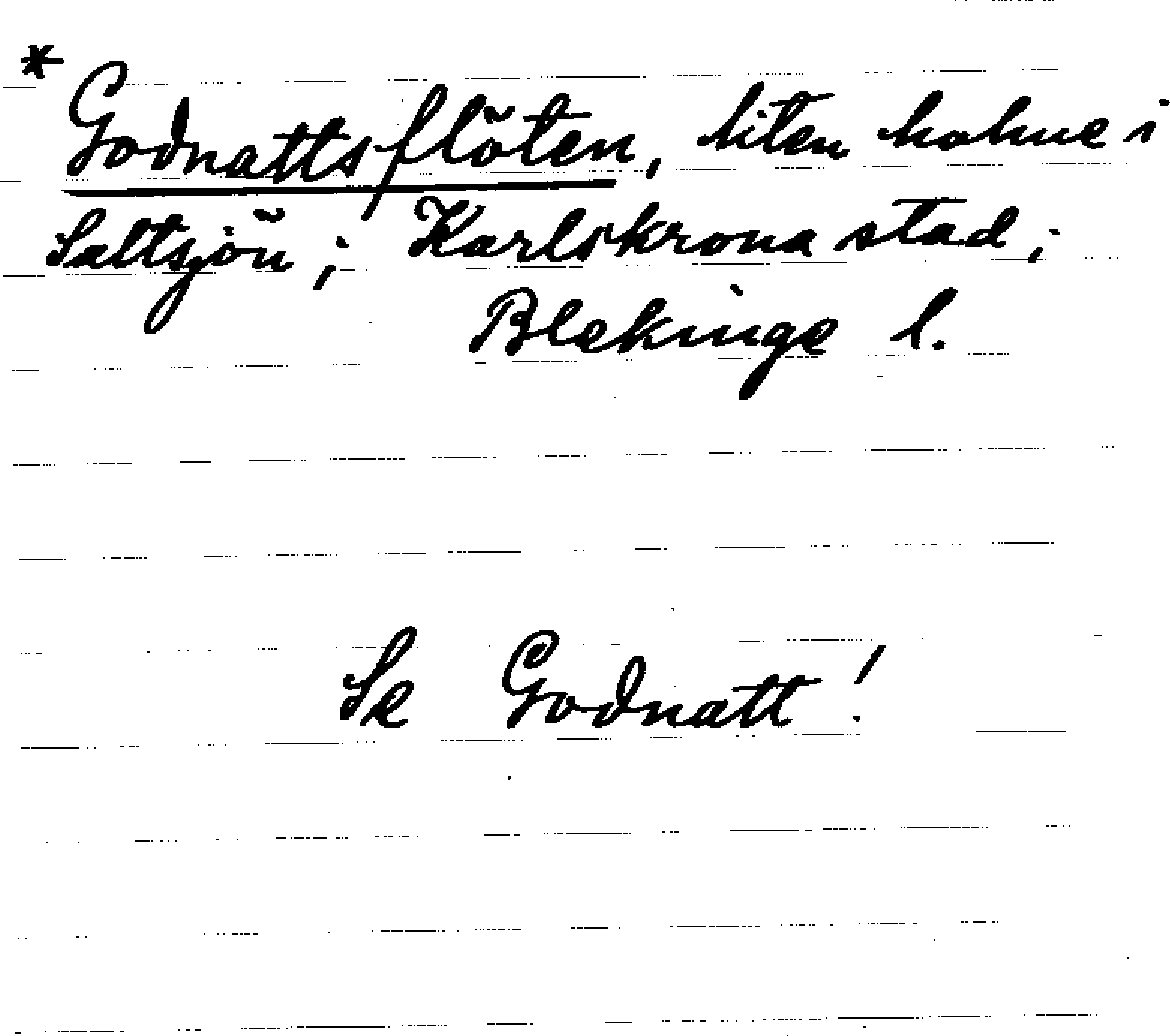 * Godnattsflöten, liten holme i
Saltsjön ; Karlskrona stad ;
Blekinge l.
Se Godnatt !